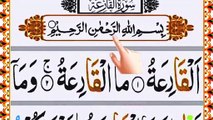 سُوْرَةُ الْقَارِعَةِ
بِسْمِ اللّٰهِ الرَّحْمٰنِ الرَّحِيْمِ
اَلْقَارِعَةُ ۙ‏﴿۱﴾ مَا الْقَارِعَةُ ۚ‏﴿۲﴾ وَمَاۤ